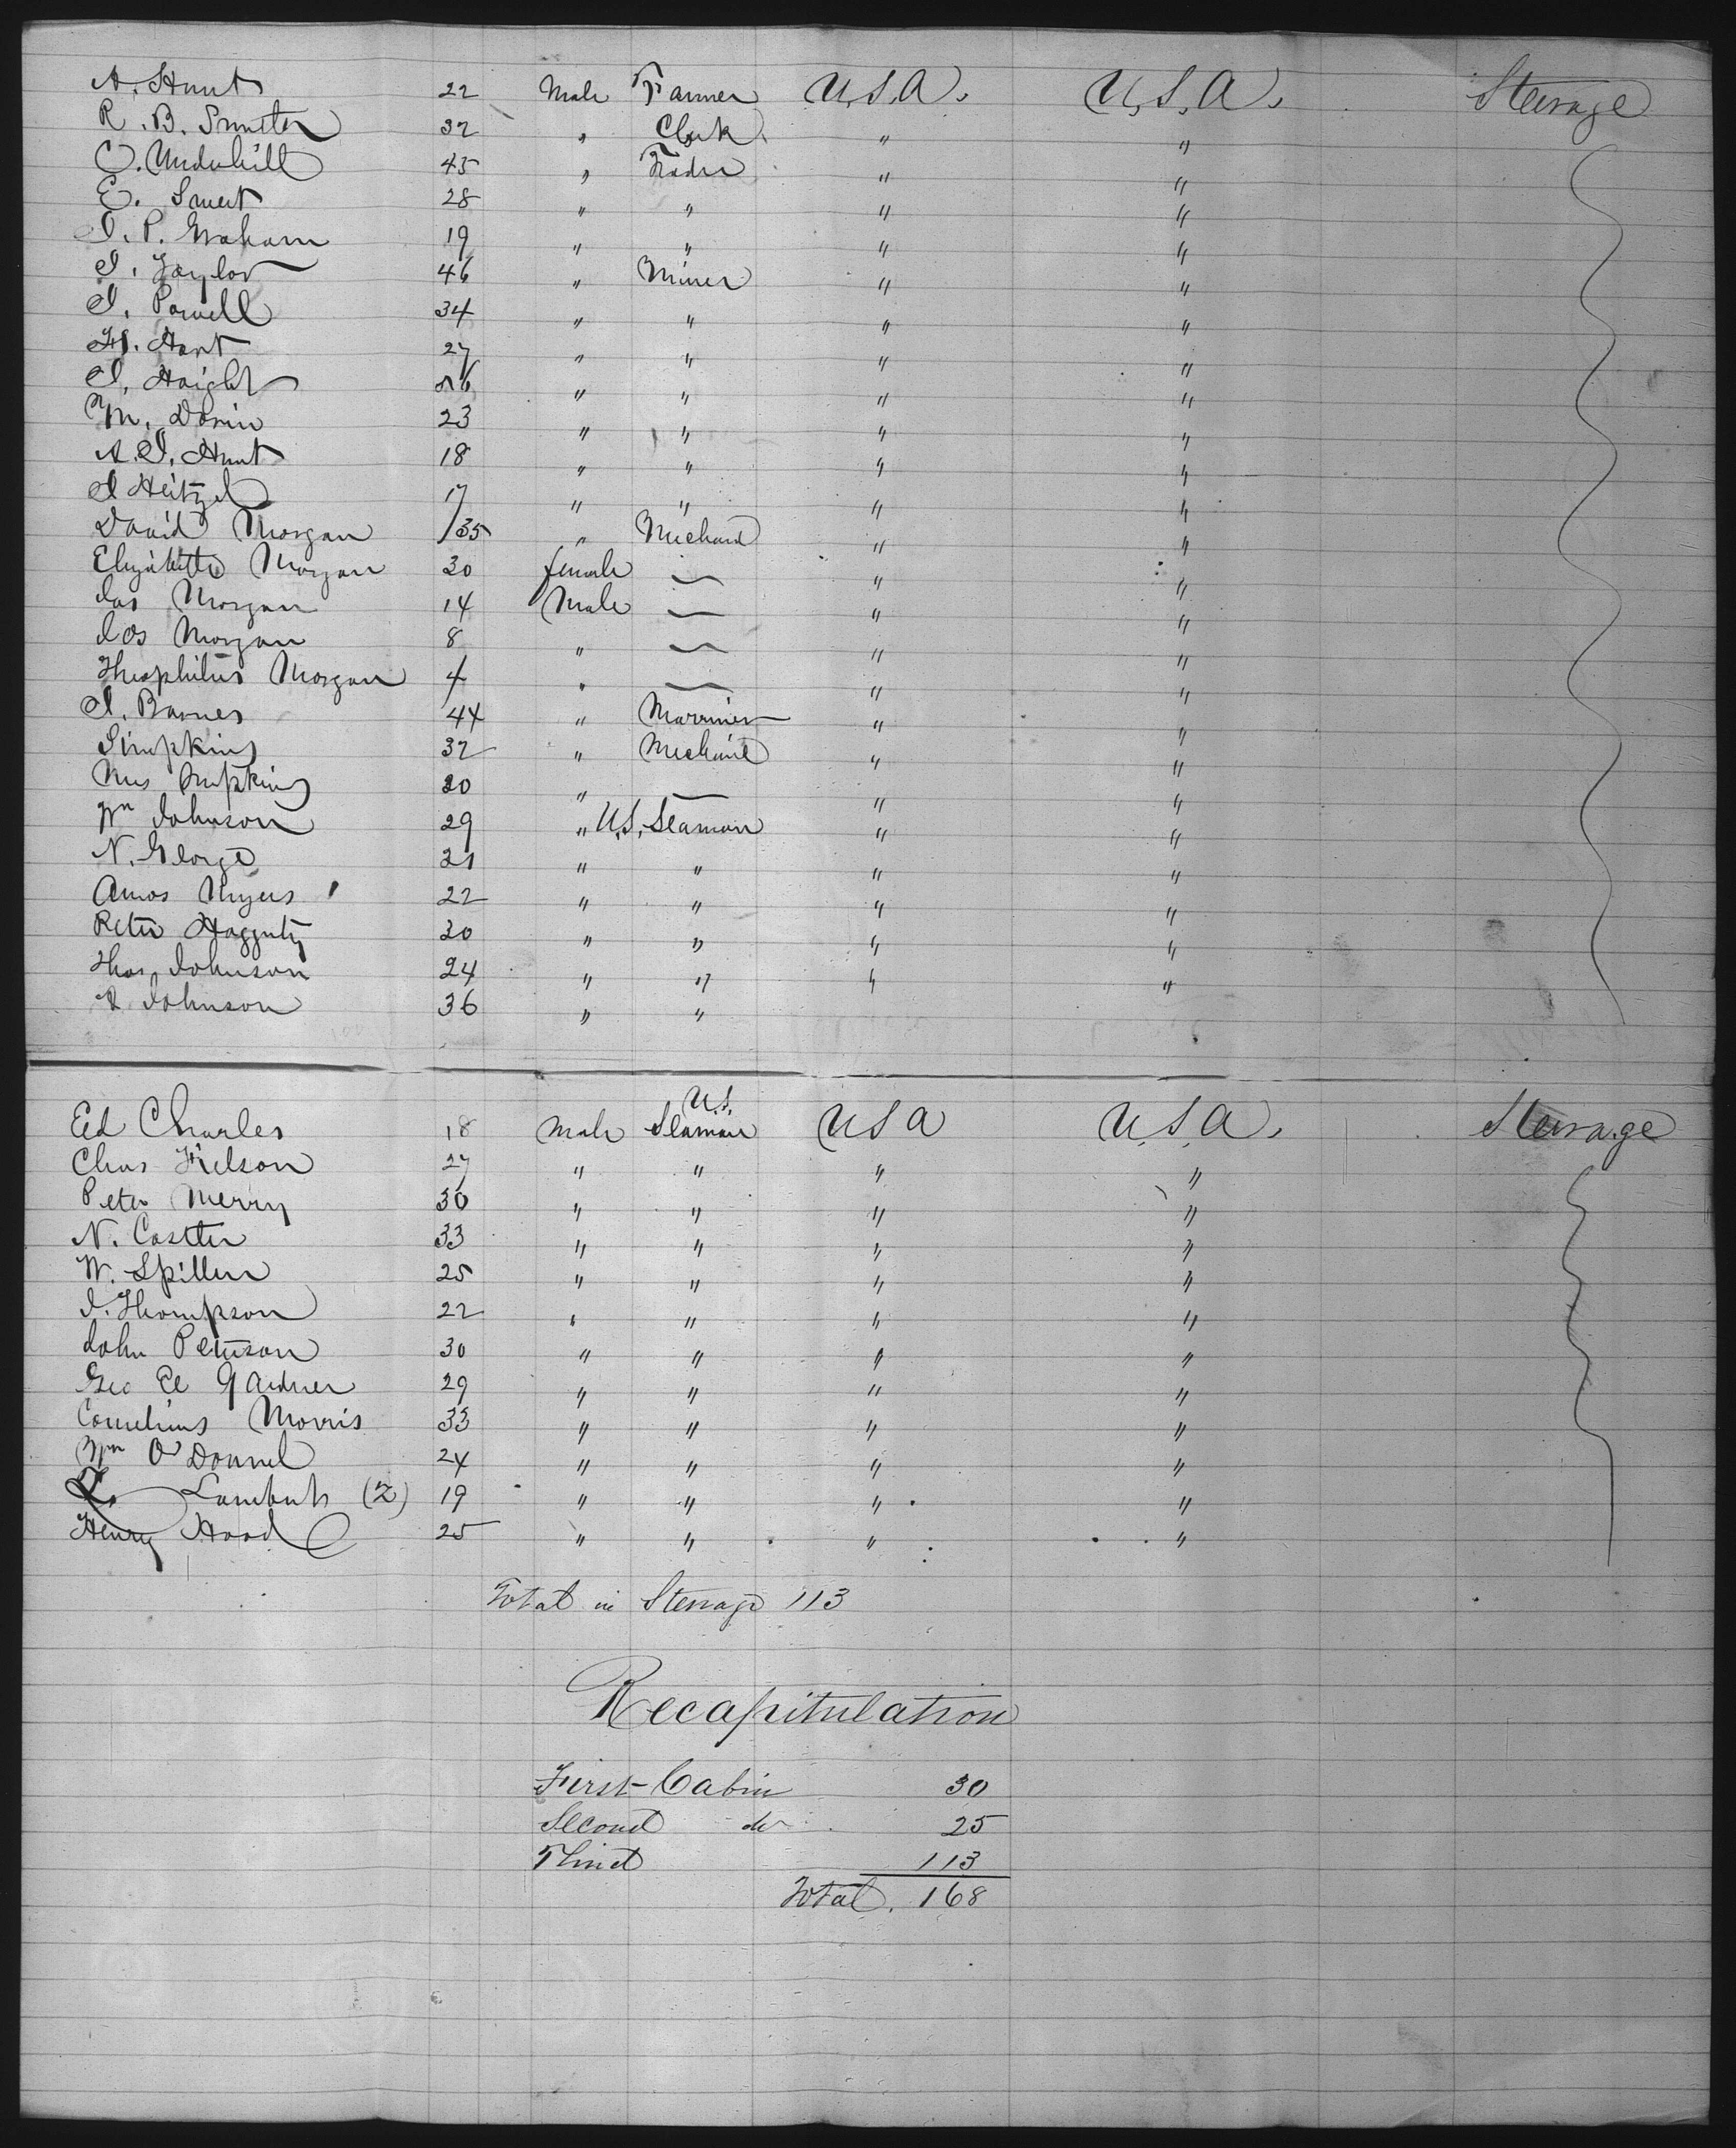 A. Hunt 22 Male Farmer U.S.A. U.S.A. Steerage
R. B. Sumter 32 " Clerk " "
C. Underhill 45 " Trader " "
E. Smeet 28 " " " "
J. P. Graham 19 " " " "
J. Taylor 46 " Miner " "
J. Powell 34 " " " "
H. Hart 27 " " " "
J. Haight " " " "
Wm. Dorin 23 " " " "
A. J. Hunt 18 " " " "
J Heitzel 17 " " " "
David Morgan 35 " Mechanic " "
Elizabeth Morgan 30 female — " "
Jas Morgan 14 Male — " "
Jos Morgan 8 " — " "
Theophilus Morgan 4 " — " "
J. Barnes 44 " Marriner " "
Simpkins 32 " Mechanic " "
Mrs Simpkins 20 " — " "
Wm Johnson 29 " U.S. Seaman " "
N. George 21 " " " "
Amos Myers 22 " " " "
Peter Haggerty 20 " " " "
Thos Johnson 24 " " " "
A Johnson 36 " "
Ed Charles 18 Male U.S. Seaman U S A U.S.A. Steerage
Chas Nelson 27 " " " "
Peter Merry 30 " " " "
N. Castter 33 " " " "
W. Spiller 25 " " " "
J. Thompson 22 " " " "
John Peterson 30 " " " "
Geo E Gardner 29 " " " "
Cornelius Morris 33 " " " "
Wm O'Donnel 24 " " " "
L. (2) 19 " " " "
Henry Hood 25 " " " "
Total in Sterrage 113
Recapitulation
First Cabin 30
Second do 25
Third 113
Total. 168